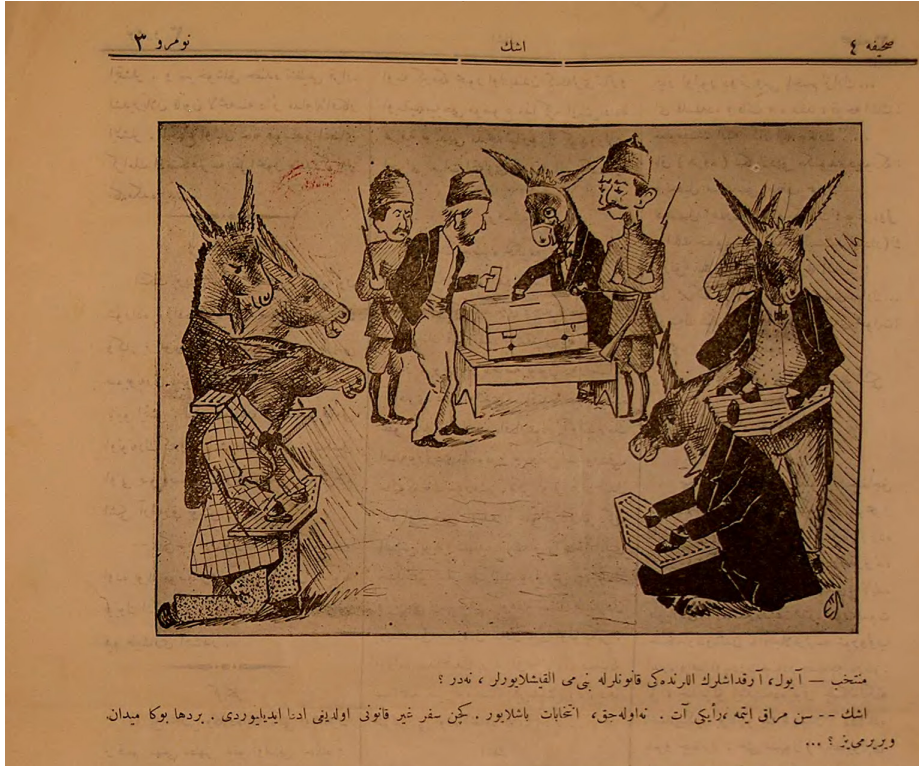 صحیفه ٤
اشك
نومرو ٣
منتخب — آیول، آرقداشلرك اللرنده‌كی قانونلرله بنی‌می القیشلایورلر ، نه‌در ؟
اشك -- سن مراق ایتمه ،رأیكی آت . نه‌اوله‌جق، انتخابات باشلایور . كچن سفر غیر قانونی اولدیغی ادعا ایدیلیوردی . بردها بوكا میدان.
ویریرمی‌یز ؟ ...